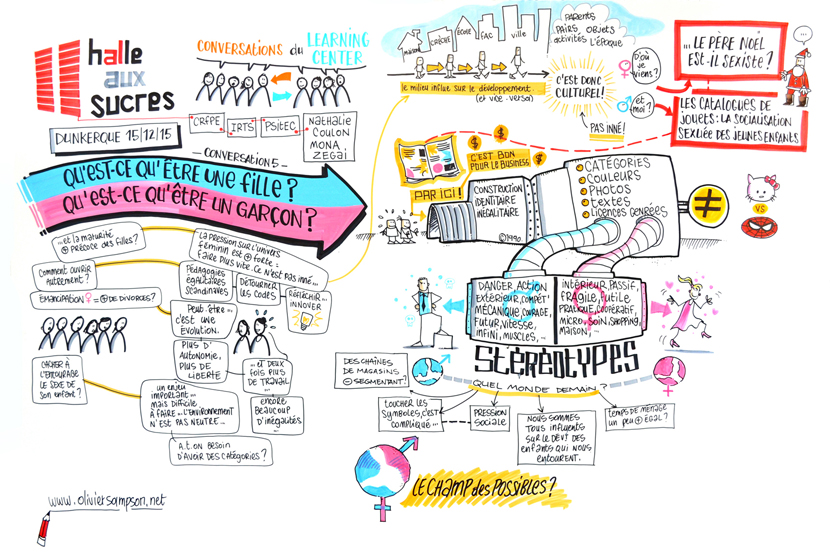 halle
aux
sucres
DUNKERQUE 15/12/15
CONVERSATIONS du
LEARNING
CENTER
CRFPE
IRTS
PSiTEC
Nathalie
COULON
MONA
ZEGAI
— CONVERSATION 5 —
QU'EST-CE QU'ÊTRE UNE FILLE ?
QU'EST-CE QU'ÊTRE UN GARÇON ?
...et la maturité
⊕ précoce des filles ?
La pression sur l'univers
féminin est ⊕ forte :
faire plus vite. Ce n'est pas inné...
Comment ouvrir
autrement ?
Pédagogies
égalitaires
scandinaves
DÉTOURNER
les codes
RÉFLÉCHIR...
INNOVER
ÉMANCIPATION ♀ = ⊕ DE DIVORCES ?
Peut-être...
c'est une
évolution.
PLUS D'
AUTONOMIE,
PLUS DE
LIBERTÉ
... et deux
fois plus
de travail
...
encore
beaucoup
d'inégalités
CACHER À
L'ENTOURAGE
LE SEXE DE
son enfant ?
un enjeu
important...
mais difficile
à faire... L'environnement
n'est pas neutre...
A.t.on besoin
d'avoir des catégories ?
www.oliviersampson.net
maison
CRÈCHE
ÉCOLE
FAC
VILLE
PARENTS
PAIRS, OBJETS
activités L'ÉPOQUE
le milieu influe sur le développement.
(et vice-versa)
C'EST DONC
CULTUREL !
PAS INNÉ !
♀ D'où
je
viens ?
♂ et moi ?
... LE PÈRE NOËL
EST-iL SEXISTE ?
...
LES CATALOGUES DE
JOUETS : LA SOCIALISATION
SEXUÉE DES JEUNES ENFANTS
$ $ $
C'EST BON
POUR LE BUSINESS
PAR ICI !
CONSTRUCTION
IDENTITAIRE
INÉGALITAIRE
©1990
CATÉGORIES
COULEURS
PHOTOS
textes
LICENCES GENRÉES
≠
VS
DANGER, ACTION
EXTÉRIEUR, COMPÉT'
MÉCANIQUE, COURAGE,
FUTUR, VITESSE,
INFINI, MUSCLES, ...
intérieur, PASSIF,
FRAGILE, FUTILE
PRATIQUE, COOPÉRATIF,
MICRO, SOIN, SHOPPING,
MAISON, ...
STÉRÉOTYPES
QUEL MONDE DEMAIN ?
DES CHAÎNES
DE MAGASINS
⊖ SEGMENTANT !
TOUCHER LES
SYMBOLES, C'EST
COMPLIQUÉ...
PRESSION
SOCIALE
NOUS SOMMES
TOUS INFLUENTS
SUR LE DÉVT DES
ENFANTS QUI NOUS
ENTOURENT.
TEMPS DE MÉNAGE
UN PEU ⊕ ÉGAL ?
LE CHAMP des POSSIBLES ?